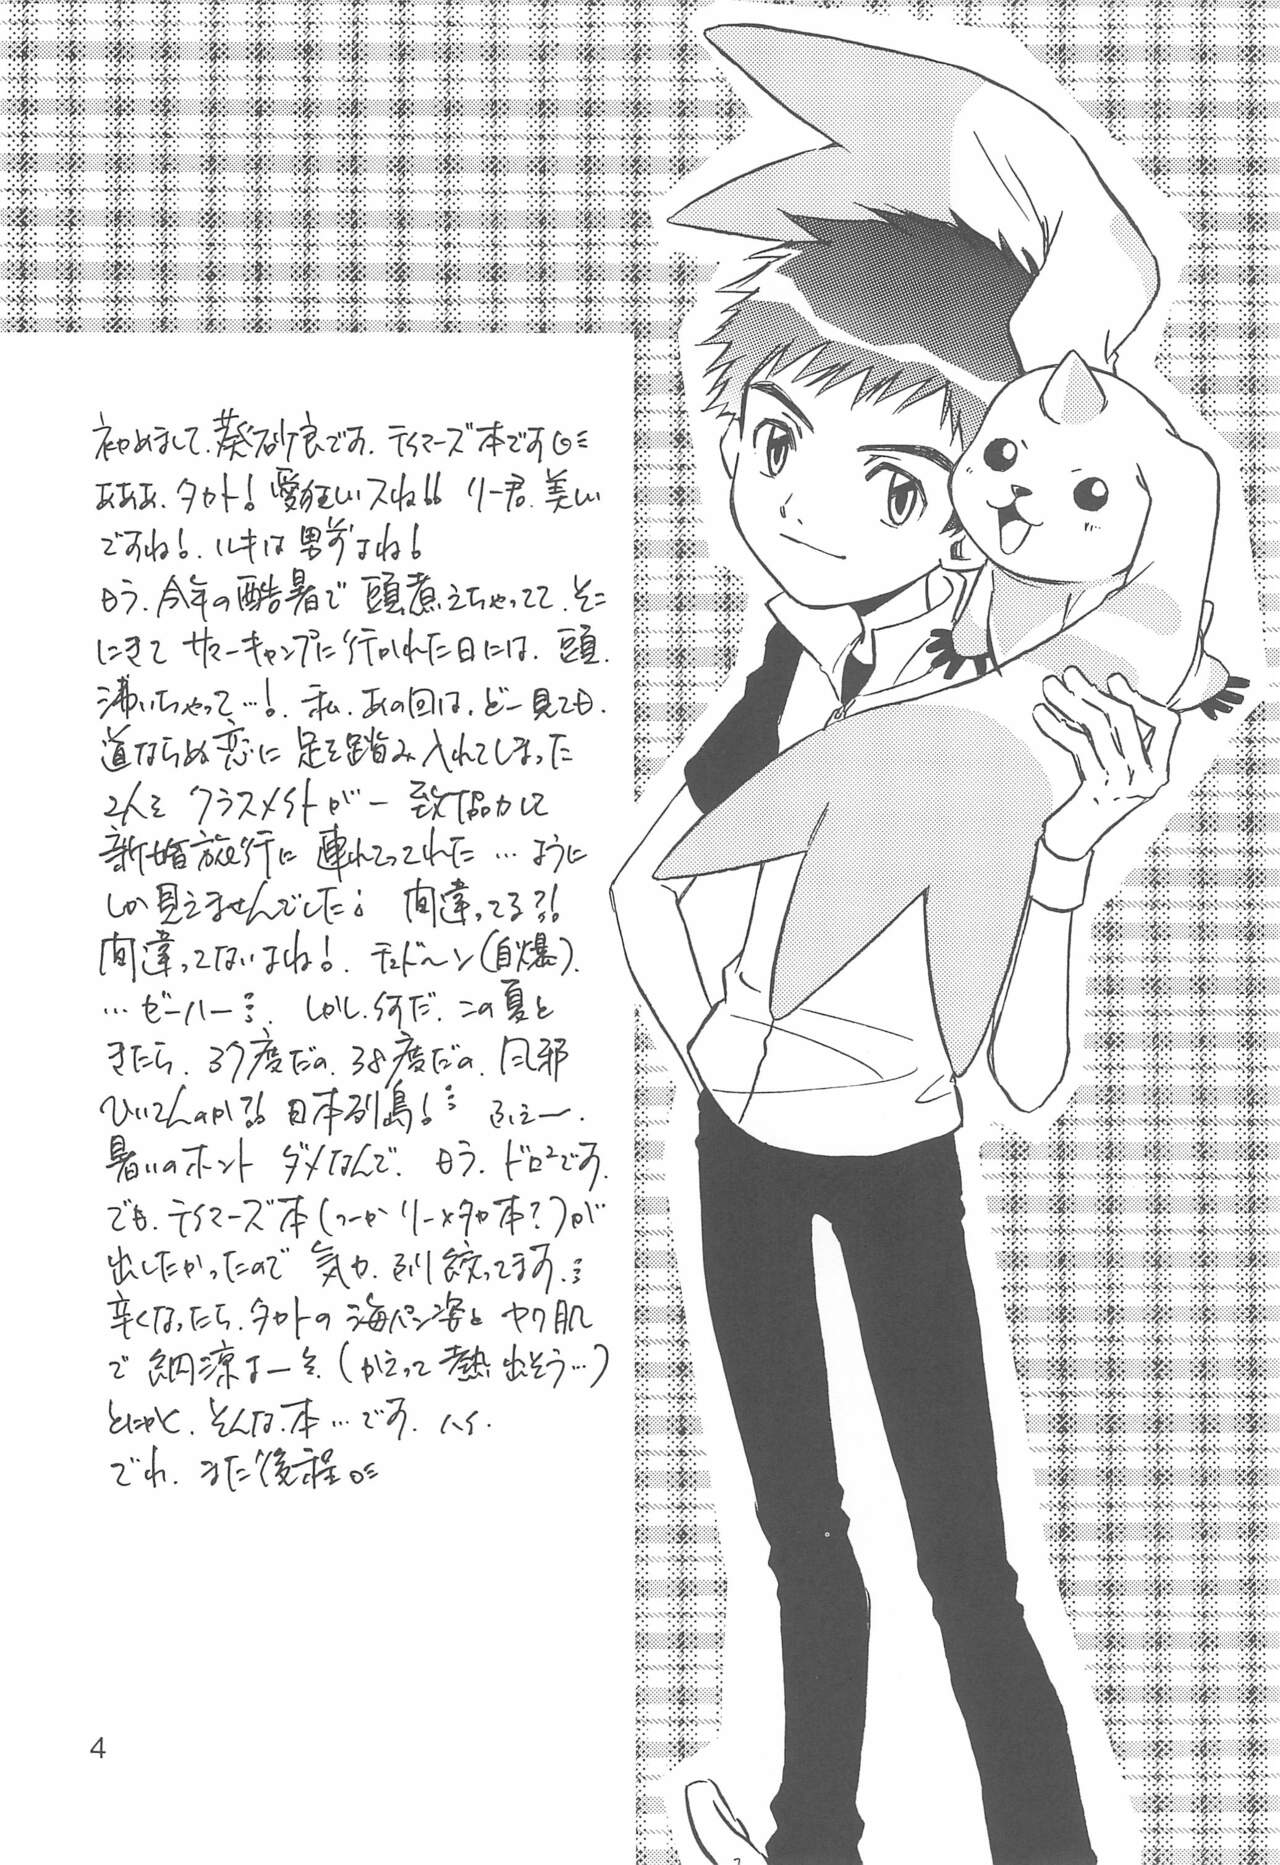 初めまして、葵砂良です。テイマーズ本です
あああ、タカト! 愛狂しいスね!! リー君、美しい
ですね!、ルキは男前よね!
もう、今年の酷暑で 頭煮えちゃってて、そこ
にきて サマーキャンプに行かれた日には、頭、
沸いちゃって…!、私、あの回は、どー見ても、
道ならぬ恋に 足を踏み入れてしまった
2人を クラスメイトが一致協力して
新婚旅行に 連れてってくれた…ように
しか見えませんでした! 間違ってる?!
間違ってないよね!、チュドーン(自爆)、
…ゼーハー…、 しかし、何だ、この夏と
きたら、37度だの、38度だの、風邪
ひいてんのか?! 日本列島!… ふえー、
暑いのホント ダメなんで、もう、ドロ2です、
でも、テイマーズ本(つーか リー×タカ本?)が
出したかったので 気力、ふり絞ってます、…
辛くなったら、タカトの海パン姿と ヤワ肌
で 納涼よーん(かえって熱出そう…)
とにかく、そんな、本…です、ハイ、
では、また後程
4